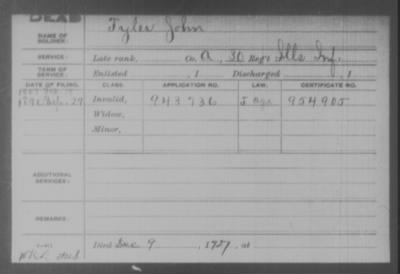 DEAD
NAME OF SOLDIER: Tyler John
SERVICE: Late rank, Co. A, 30 Reg't Ills Inf.
TERM OF SERVICE: Enlisted , 1 Discharged , 1
DATE OF FILING. CLASS. APPLICATION NO. LAW. CERTIFICATE NO.
1890 27 Invalid, 943.736 J 954905
Widow,
Minor,
ADDITIONAL SERVICES:
REMARKS:
Died Dec 9 , 1927, at